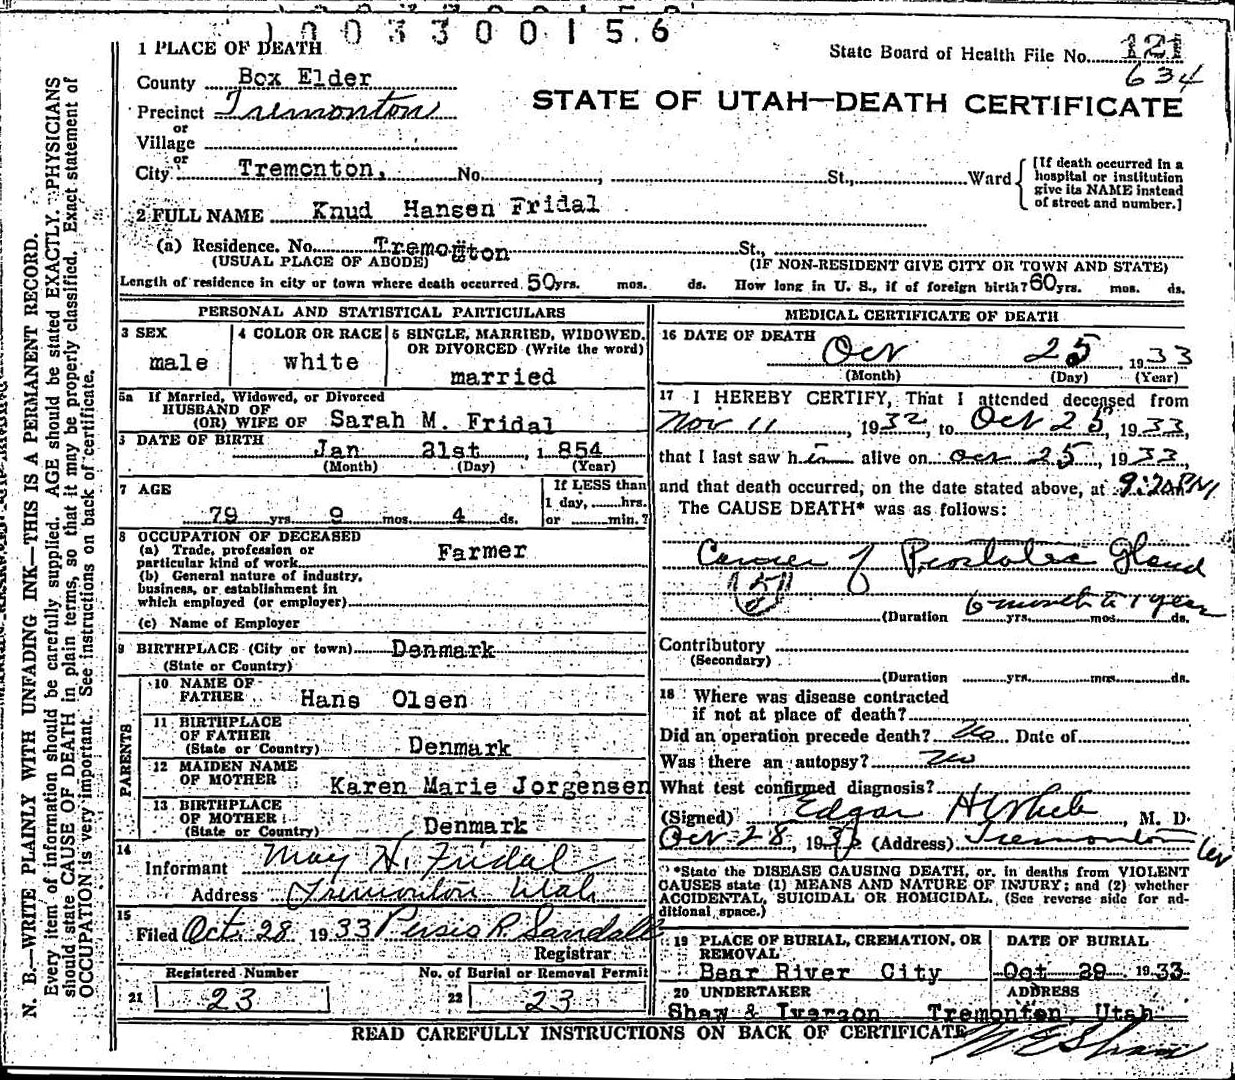 1003300156
1 PLACE OF DEATH
State Board of Health File No. 121
634
County Box Elder
Precinct Tremonton
or
Village
or
City Tremonton, No. , St., Ward
STATE OF UTAH—DEATH CERTIFICATE
[If death occurred in a
hospital or institution
give its NAME instead
of street and number.]
2 FULL NAME Knud Hansen Fridal
(a) Residence. No. Tremonton St.,
(USUAL PLACE OF ABODE) (IF NON-RESIDENT GIVE CITY OR TOWN AND STATE)
Length of residence in city or town where death occurred 50 yrs. mos. ds. How long in U. S., if of foreign birth? 60 yrs. mos. ds.
PERSONAL AND STATISTICAL PARTICULARS
3 SEX
male
4 COLOR OR RACE
white
5 SINGLE, MARRIED, WIDOWED,
OR DIVORCED (Write the word)
married
5a If Married, Widowed, or Divorced
HUSBAND OF
(OR) WIFE OF Sarah M. Fridal
DATE OF BIRTH Jan 21st , 1 854
(Month) (Day) (Year)
7 AGE
79 yrs 9 mos. 4 ds.
If LESS than
1 day, hrs.
or min.?
8 OCCUPATION OF DECEASED
(a) Trade, profession or
particular kind of work Farmer
(b) General nature of industry,
business, or establishment in
which employed (or employer)
(c) Name of Employer
9 BIRTHPLACE (City or town) Denmark
(State or Country)
PARENTS
10 NAME OF
FATHER Hans Olsen
11 BIRTHPLACE
OF FATHER
(State or Country) Denmark
12 MAIDEN NAME
OF MOTHER Karen Marie Jorgensen
13 BIRTHPLACE
OF MOTHER
(State or Country) Denmark
14
Informant May H. Fridal
Address Tremonton Utah
15
Filed Oct. 28 1933 Persis R. Sandall
Registrar
Registered Number
21 23
No. of Burial or Removal Permit
22 23
MEDICAL CERTIFICATE OF DEATH
16 DATE OF DEATH
Oct 25 , 1933
(Month) (Day) (Year)
17 I HEREBY CERTIFY, That I attended deceased from
Nov 11 , 1932, to Oct 25, 1933,
that I last saw him alive on Oct 25, 1933,
and that death occurred, on the date stated above, at 9:20 PM
The CAUSE DEATH* was as follows:
Cancer of Prostatic Gland
(51)
(Duration 6 months to 1 year yrs. mos. ds.
Contributory
(Secondary)
(Duration yrs. mos. ds.
18 Where was disease contracted
if not at place of death?
Did an operation precede death? No Date of
Was there an autopsy? No
What test confirmed diagnosis?
(Signed) Edgar H White , M. D.
Oct 28, 1933 (Address) Tremonton
*State the DISEASE CAUSING DEATH, or, in deaths from VIOLENT
CAUSES state (1) MEANS AND NATURE OF INJURY; and (2) whether
ACCIDENTAL, SUICIDAL OR HOMICIDAL. (See reverse side for ad-
ditional space.)
19 PLACE OF BURIAL, CREMATION, OR
REMOVAL
Bear River City
DATE OF BURIAL
Oct 29 , 1933
20 UNDERTAKER
Shaw & Iverson
ADDRESS
Tremonton, Utah
READ CAREFULLY INSTRUCTIONS ON BACK OF CERTIFICATE
W E Shaw
N. B.—WRITE PLAINLY WITH UNFADING INK—THIS IS A PERMANENT RECORD.
Every item of information should be carefully supplied. AGE should be stated EXACTLY. PHYSICIANS
should state CAUSE OF DEATH in plain terms, so that it may be properly classified. Exact statement of
OCCUPATION is very important. See instructions on back of certificate.